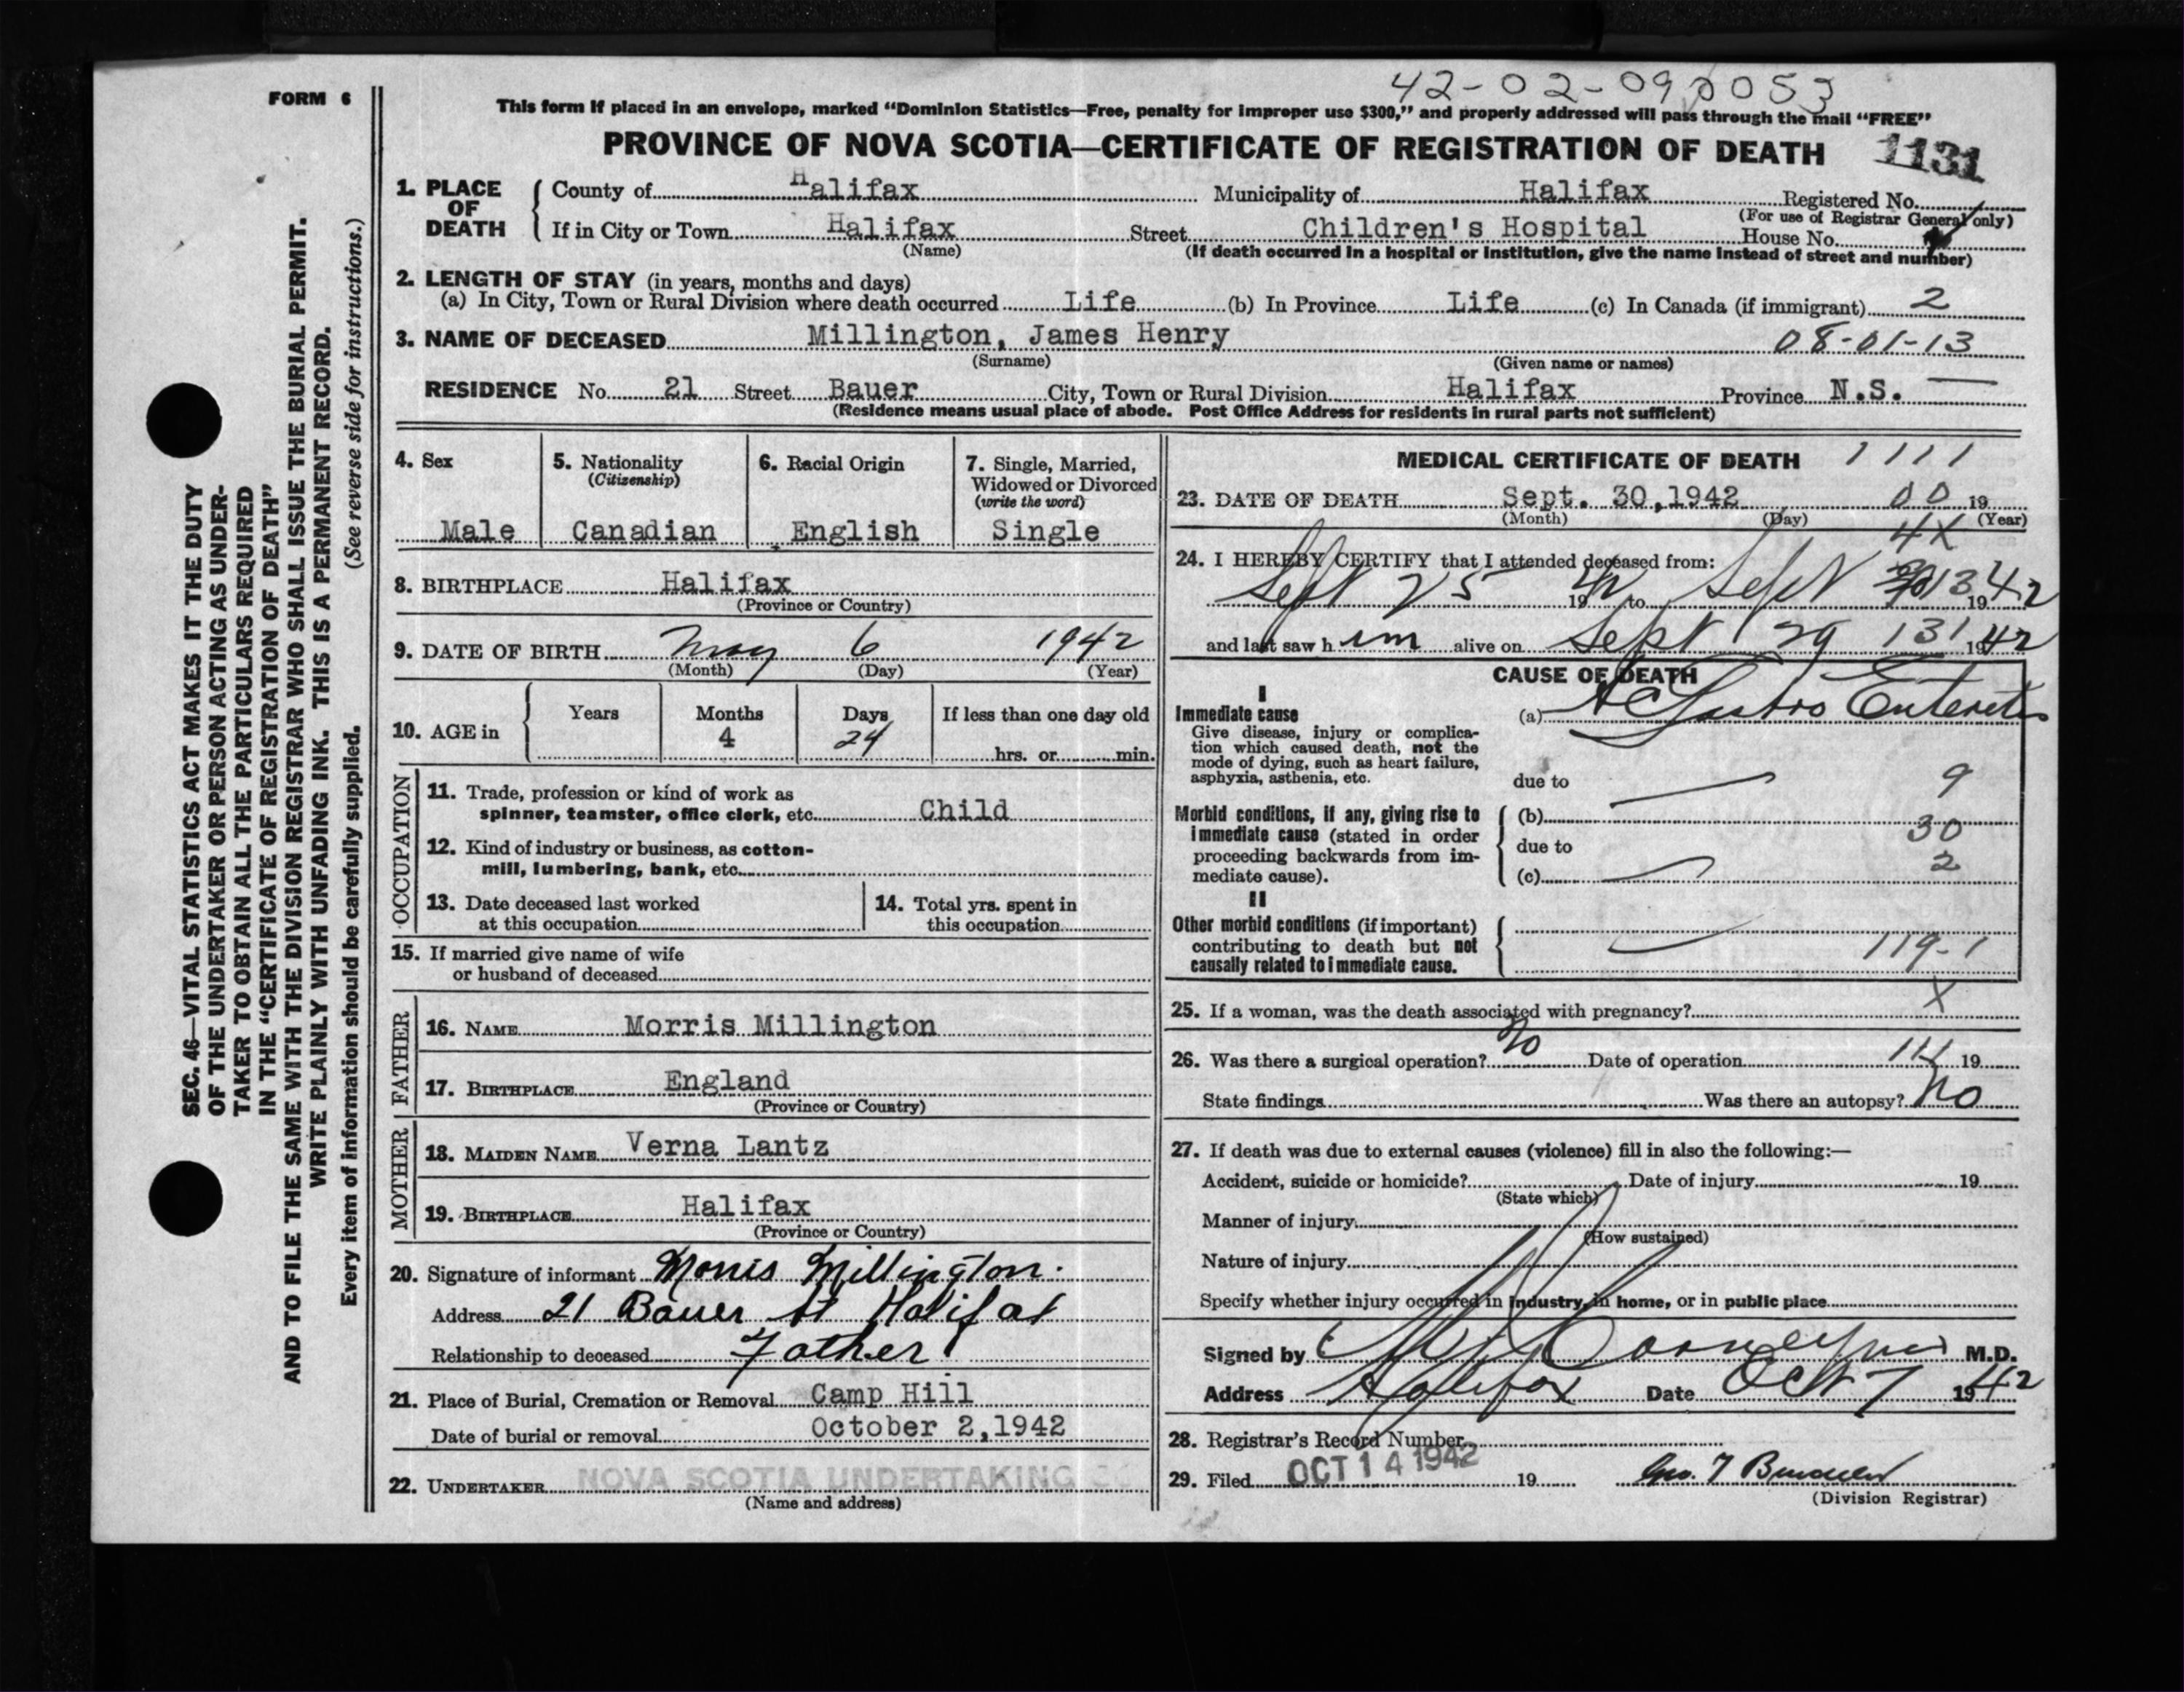 42-02-09 0053
FORM 6
This form if placed in an envelope, marked “Dominion Statistics—Free, penalty for improper use $300,” and properly addressed will pass through the mail “FREE”
PROVINCE OF NOVA SCOTIA—CERTIFICATE OF REGISTRATION OF DEATH 1131
1. PLACE OF DEATH
County of Halifax Municipality of Halifax Registered No.
(For use of Registrar General only)
If in City or Town Halifax Street Children's Hospital House No.
(Name) (If death occurred in a hospital or institution, give the name instead of street and number)
2. LENGTH OF STAY (in years, months and days)
(a) In City, Town or Rural Division where death occurred Life (b) In Province Life (c) In Canada (if immigrant) 2
3. NAME OF DECEASED Millington, James Henry 08-01-13
(Surname) (Given name or names)
RESIDENCE No. 21 Street Bauer City, Town or Rural Division Halifax Province N.S.
(Residence means usual place of abode. Post Office Address for residents in rural parts not sufficient)
4. Sex
Male
5. Nationality
(Citizenship)
Canadian
6. Racial Origin
English
7. Single, Married,
Widowed or Divorced
(write the word)
Single
8. BIRTHPLACE Halifax
(Province or Country)
9. DATE OF BIRTH May 6 1942
(Month) (Day) (Year)
10. AGE in
Years Months Days If less than one day old
4 24 hrs. or min.
OCCUPATION
11. Trade, profession or kind of work as
spinner, teamster, office clerk, etc. Child
12. Kind of industry or business, as cotton-
mill, lumbering, bank, etc.
13. Date deceased last worked
at this occupation
14. Total yrs. spent in
this occupation
15. If married give name of wife
or husband of deceased
FATHER
16. NAME Morris Millington
17. BIRTHPLACE England
(Province or Country)
MOTHER
18. MAIDEN NAME Verna Lantz
19. BIRTHPLACE Halifax
(Province or Country)
20. Signature of informant Morris Millington.
Address 21 Bauer St Halifax
Relationship to deceased Father
21. Place of Burial, Cremation or Removal Camp Hill
Date of burial or removal October 2,1942
22. UNDERTAKER NOVA SCOTIA UNDERTAKING CO
(Name and address)
MEDICAL CERTIFICATE OF DEATH 1111
23. DATE OF DEATH Sept. 30,1942 00 19
(Month) (Day) (Year)
4X
24. I HEREBY CERTIFY that I attended deceased from:
Sept 25 1942 to Sept 13 1942
and last saw him alive on Sept 29 131 1942
CAUSE OF DEATH
I
Immediate cause
Give disease, injury or complica-
tion which caused death, not the
mode of dying, such as heart failure,
asphyxia, asthenia, etc.
(a) Ac Gastro Enteritis
due to 9
Morbid conditions, if any, giving rise to
immediate cause (stated in order
proceeding backwards from im-
mediate cause).
(b) 30
due to 2
(c)
II
Other morbid conditions (if important)
contributing to death but not
causally related to immediate cause.
119-1
25. If a woman, was the death associated with pregnancy? X
26. Was there a surgical operation? No Date of operation 19
State findings Was there an autopsy? No
27. If death was due to external causes (violence) fill in also the following:—
Accident, suicide or homicide? Date of injury 19
(State which)
Manner of injury
(How sustained)
Nature of injury
Specify whether injury occurred in industry, in home, or in public place
Signed by M.D.
Address Halifax Date Oct 7 1942
28. Registrar's Record Number
29. Filed OCT 14 1942 19
(Division Registrar)
SEC. 46—VITAL STATISTICS ACT MAKES IT THE DUTY
OF THE UNDERTAKER OR PERSON ACTING AS UNDER-
TAKER TO OBTAIN ALL THE PARTICULARS REQUIRED
IN THE “CERTIFICATE OF REGISTRATION OF DEATH”
AND TO FILE THE SAME WITH THE DIVISION REGISTRAR WHO SHALL ISSUE THE BURIAL PERMIT.
WRITE PLAINLY WITH UNFADING INK. THIS IS A PERMANENT RECORD.
Every item of information should be carefully supplied. (See reverse side for instructions.)